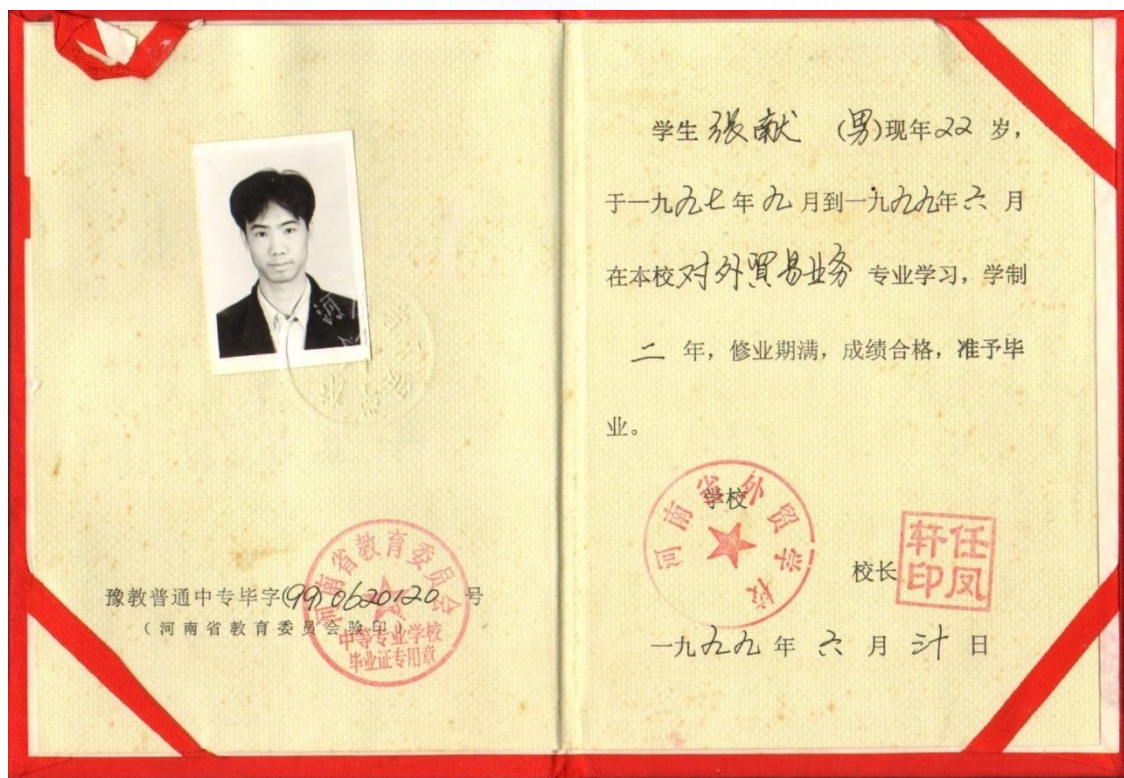 豫教普通中专毕字(99)0620120号
(河南省教育委员会验印)
河南省教育委员会
中等专业学校
毕业证专用章
学生 張献 (男)现年22岁，
于一九九七年九月到一九九九年六月
在本校对外貿易业务专业学习，学制
二年，修业期满，成绩合格，准予毕
业。
学校
河南省外贸学校
校长
任凤
轩印
一九九九年六月卅日